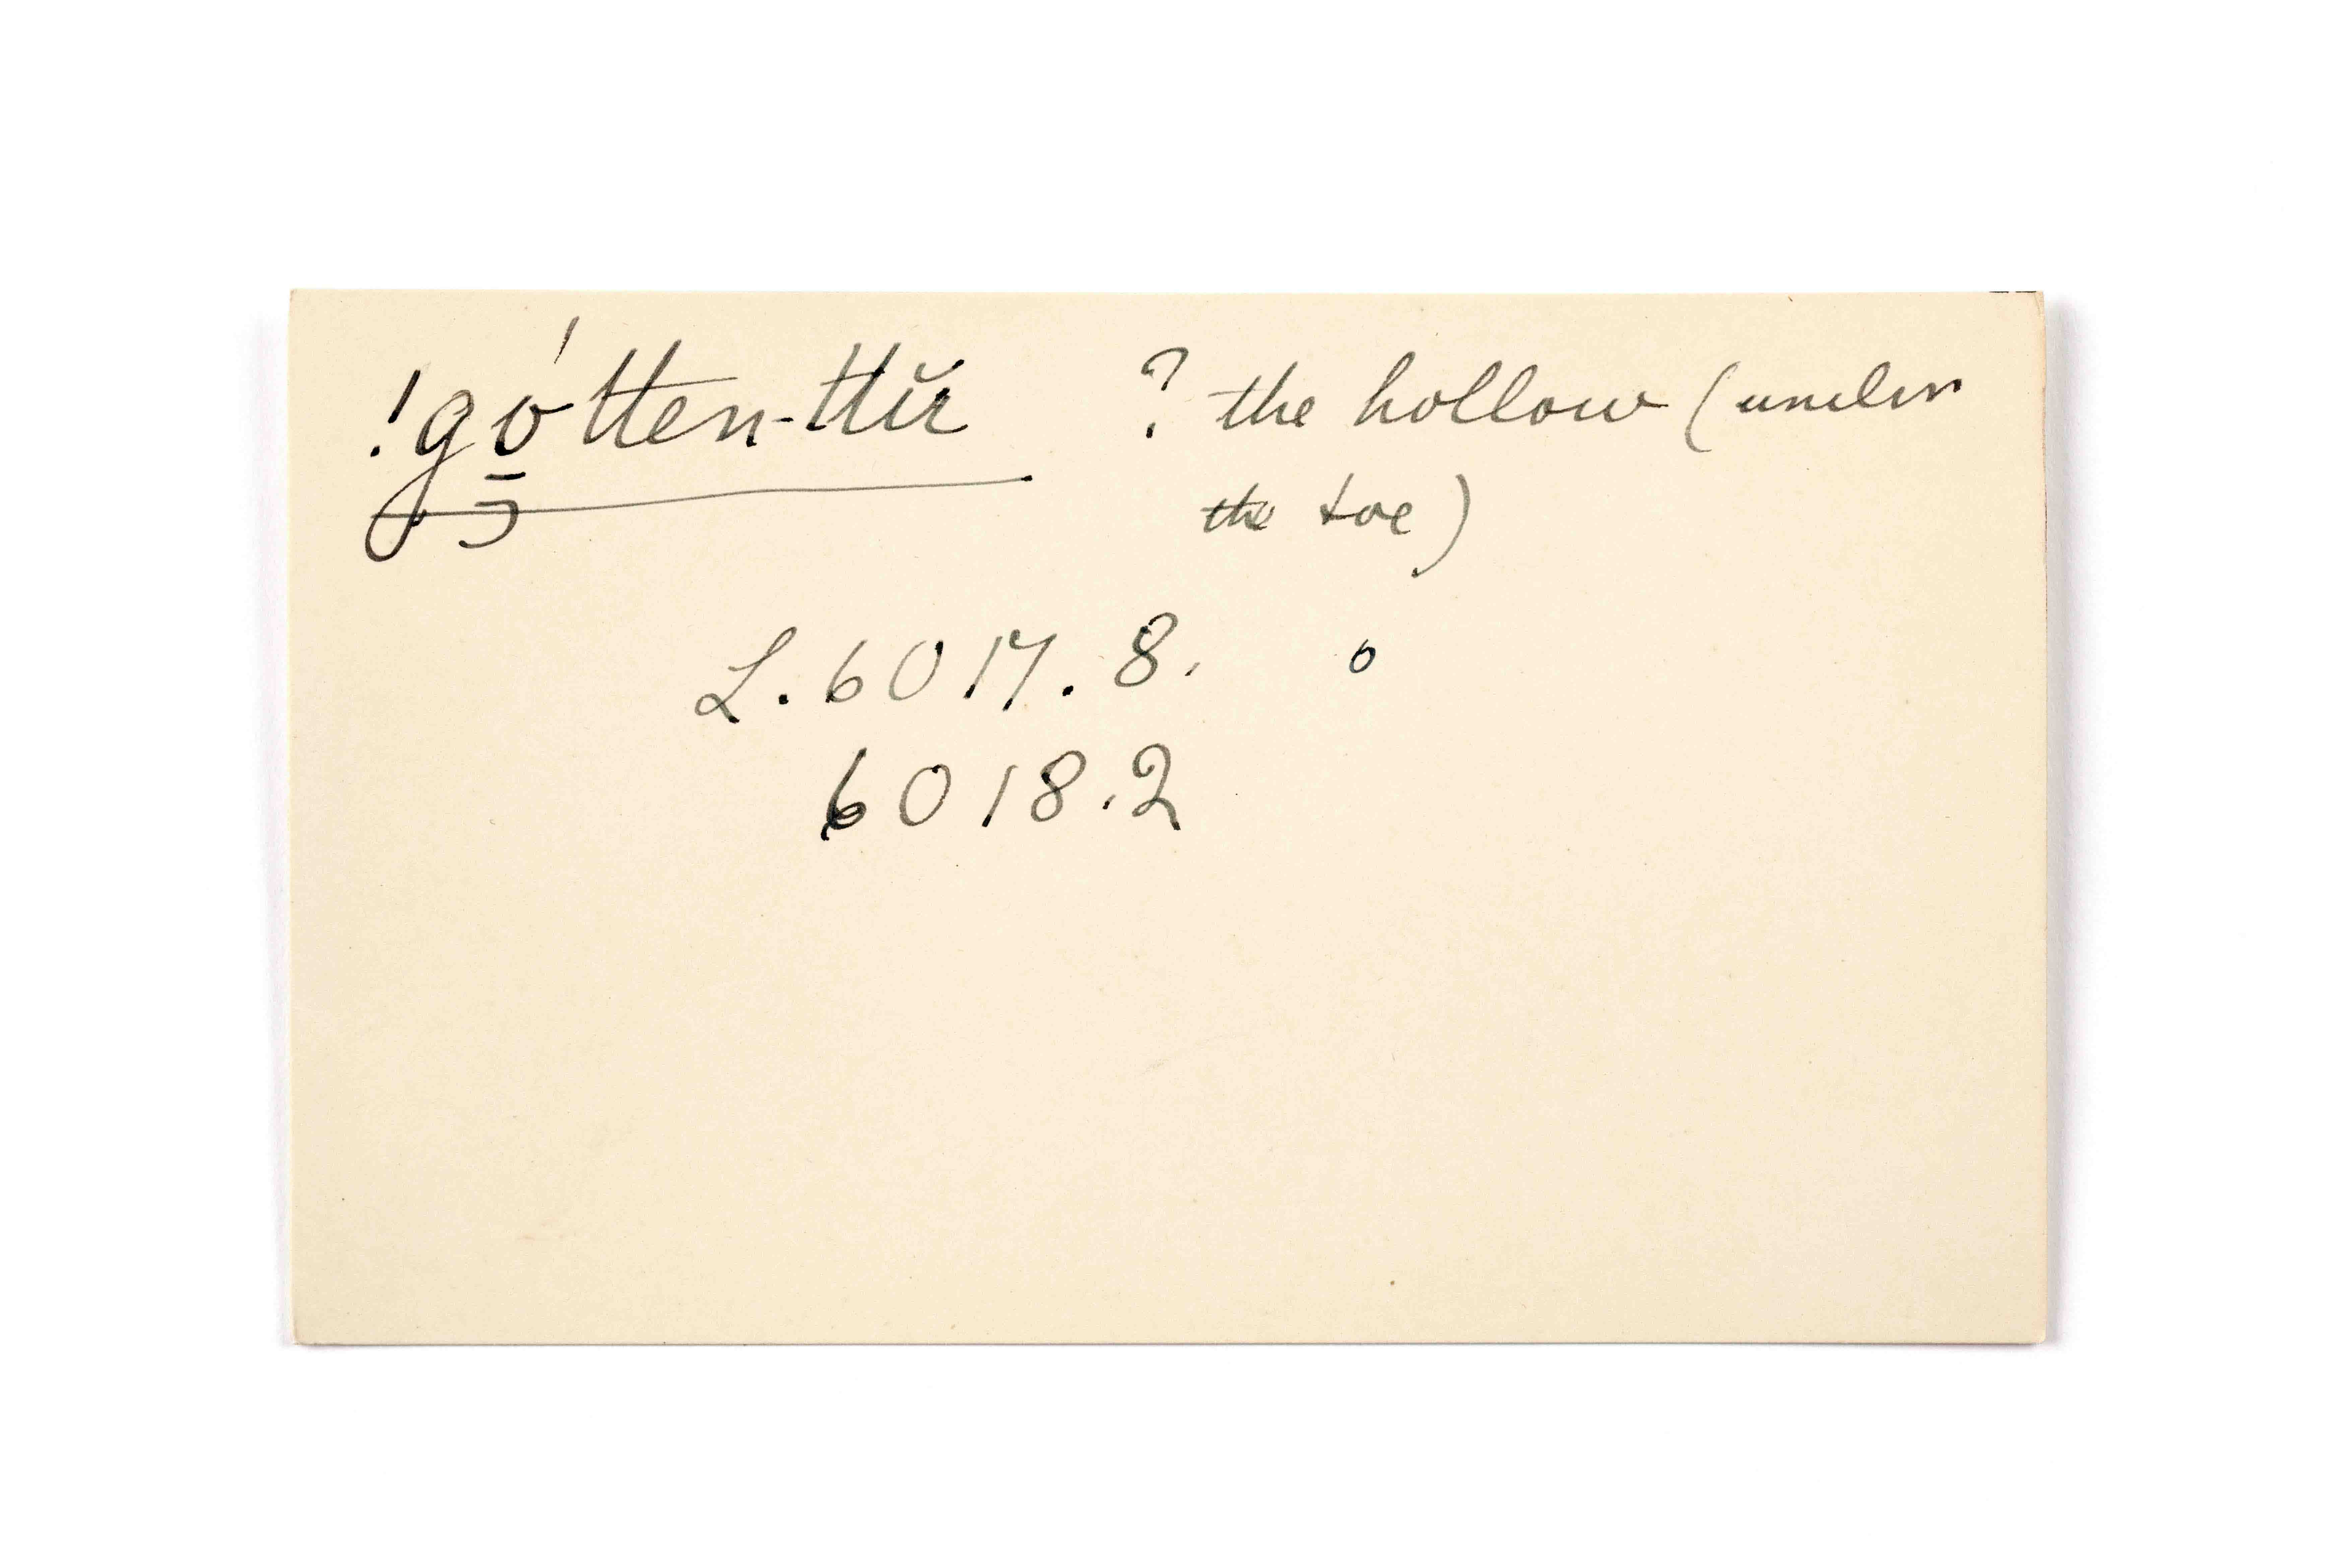 !gó̱tten-ttŭ ? the hollow (under
the toe)
L. 6017. 8. o
6018.2